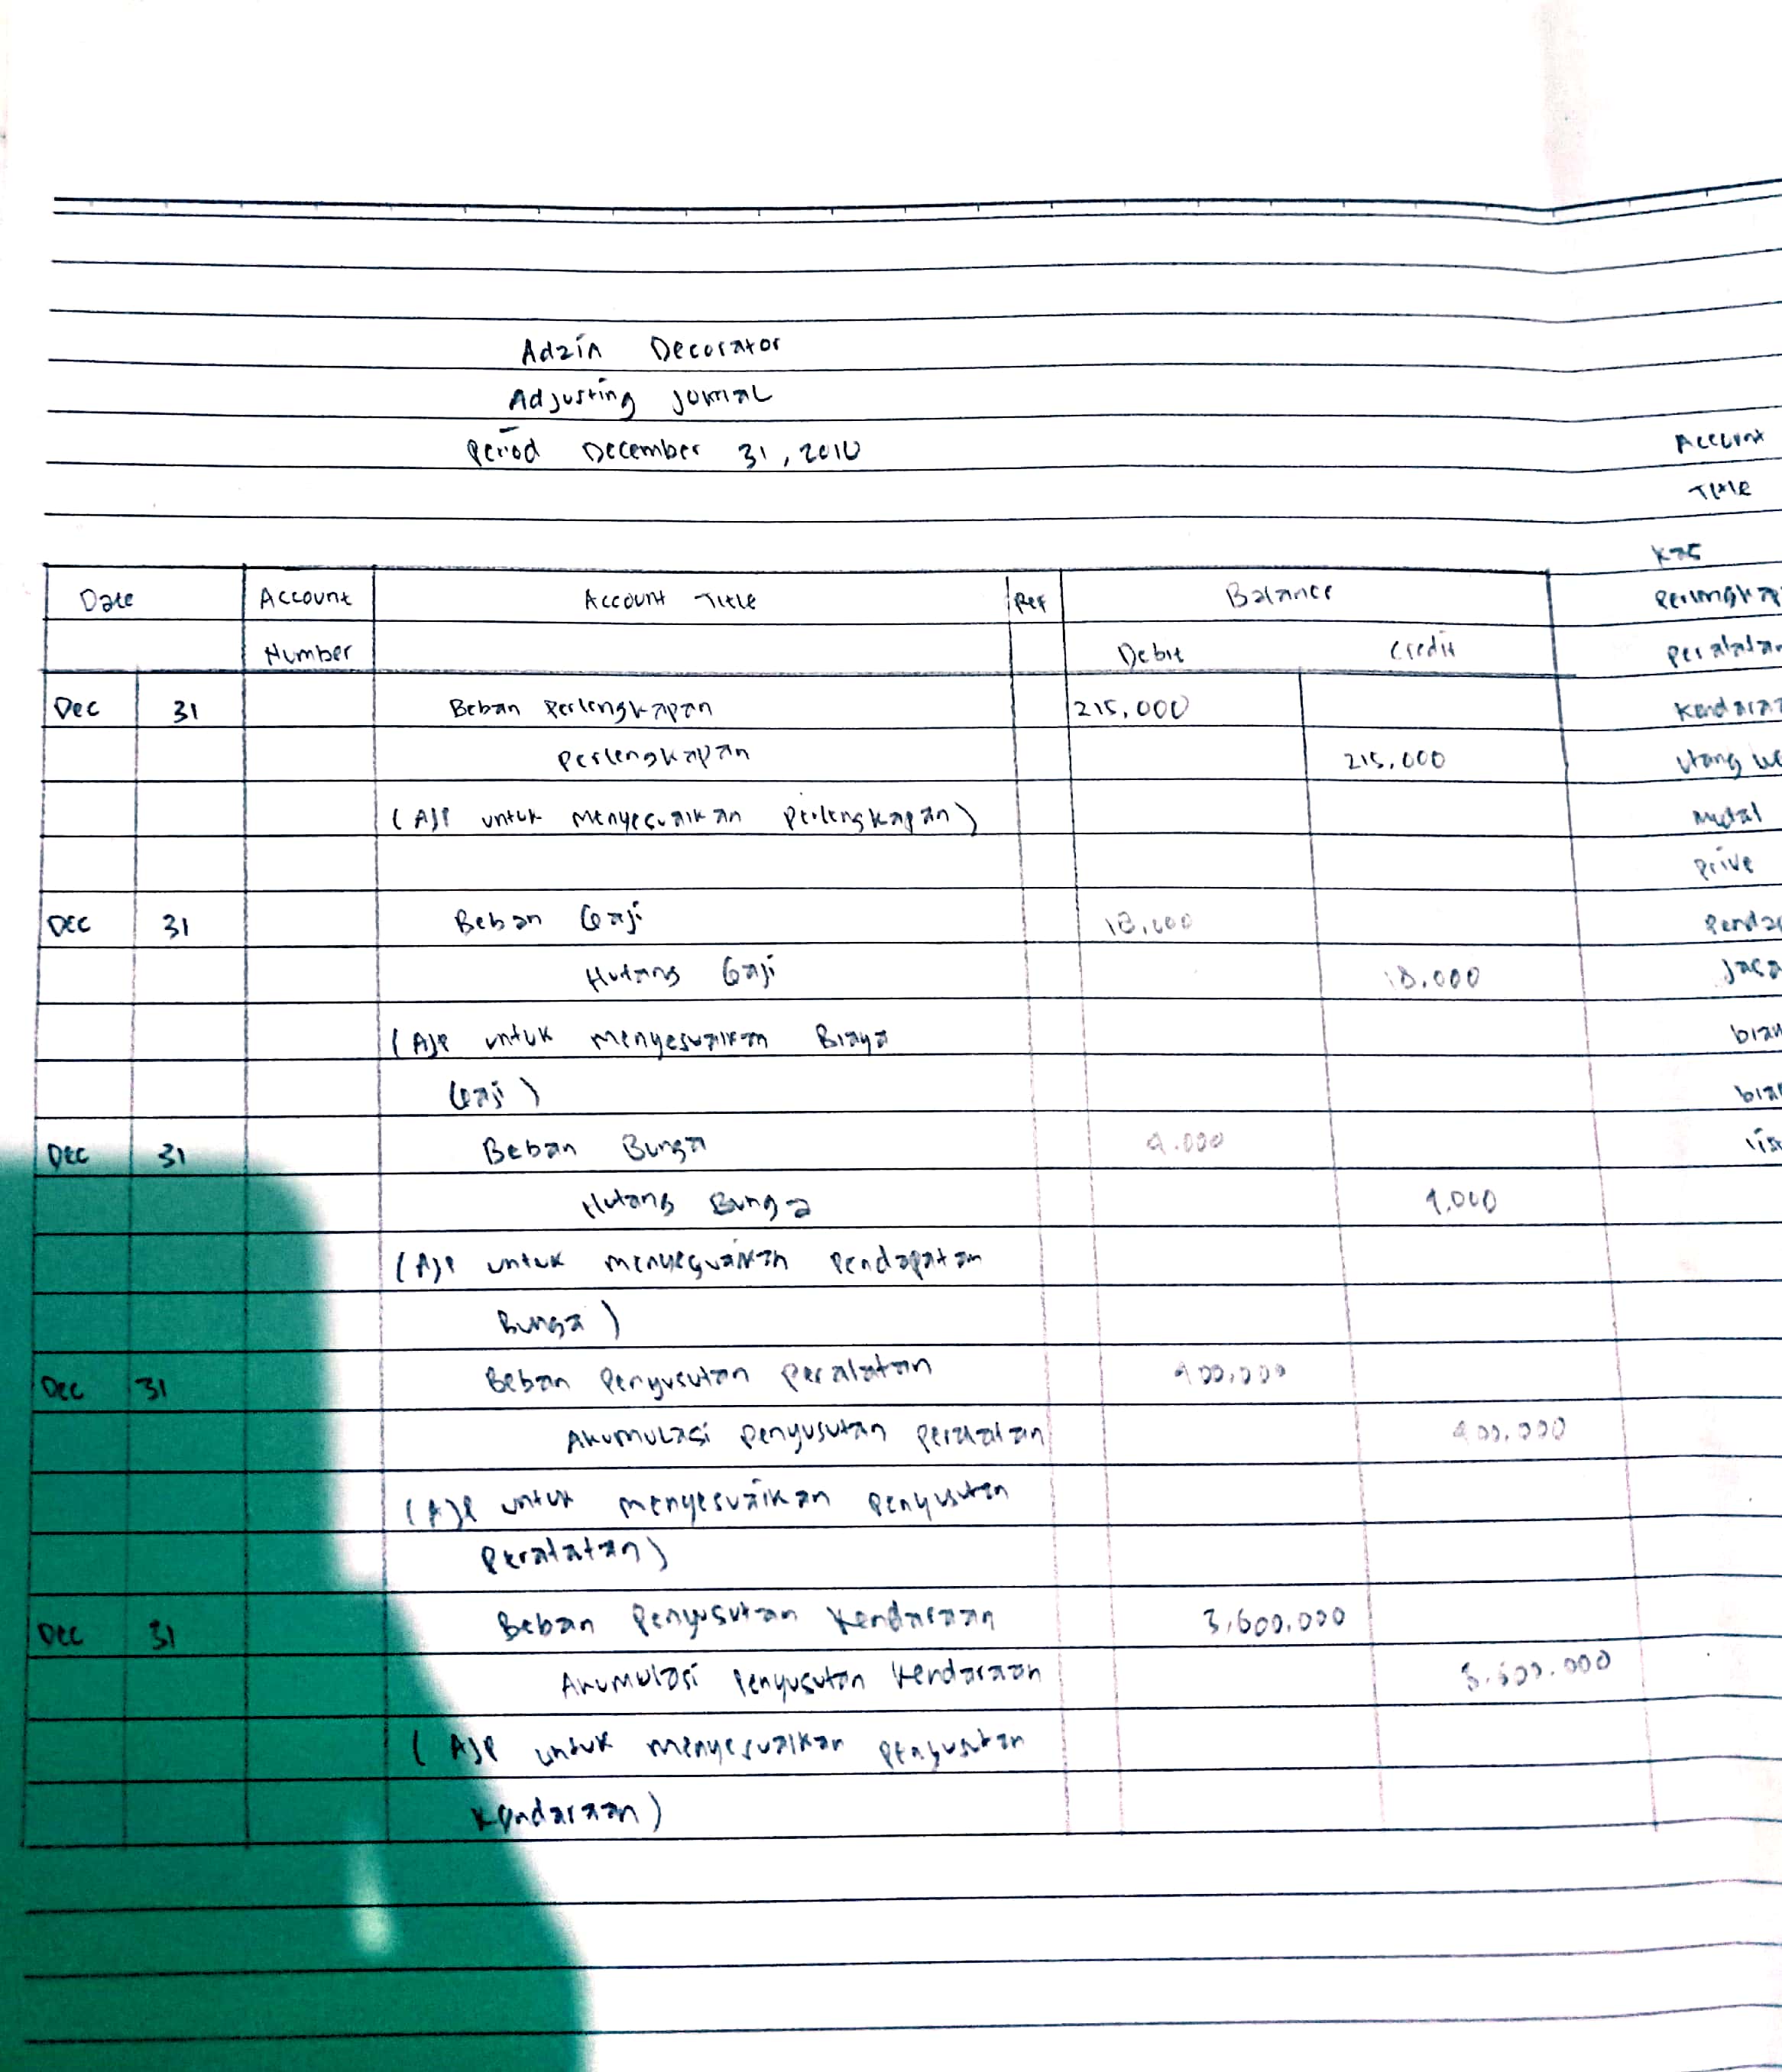 Adzin Decorator
Adjusting Jornal
Period December 31, 2010
Date Account Account Title Ref Balance
Number Debit Credit
Dec 31 Beban Perlengkapan 215,000
Perlengkapan 215,000
(AJP untuk menyesuaikan Perlengkapan)
Dec 31 Beban Gaji 18,000
Hutang Gaji 18.000
(AJP untuk menyesuaikan Biaya
Gaji)
Dec 31 Beban Bunga
Hutang Bunga
(AJP untuk menyesuaikan Pendapatan
Bunga)
Dec 31 Beban Penyusutan Peralatan
Akumulasi penyusutan peralatan
(AJP untuk menyesuaikan Penyusutan
Peralatan)
Dec 31 Beban Penyusutan Kendaraan 3,600,000
Akumulasi Penyusutan Kendaraan
(AJP untuk menyesuaikan Penyusutan
Kendaraan)
Account
Title
Kas
Perlengkap
Peralatan
Kendaraa
Utang
Modal
Prive
Penda
Jasa